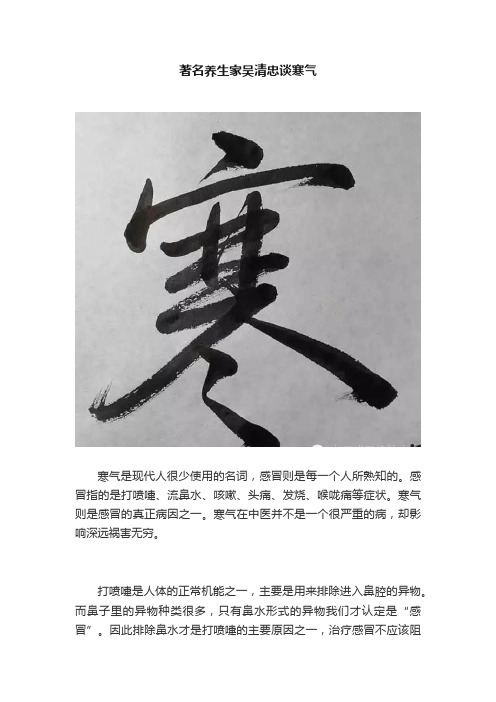 著名养生家吴清忠谈寒气
寒
寒气是现代人很少使用的名词，感冒则是每一个人所熟知的。感
冒指的是打喷嚏、流鼻水、咳嗽、头痛、发烧、喉咙痛等症状。寒气
则是感冒的真正病因之一。寒气在中医并不是一个很严重的病，却影
响深远祸害无穷。
打喷嚏是人体的正常机能之一，主要是用来排除进入鼻腔的异物。
而鼻子里的异物种类很多，只有鼻水形式的异物我们才认定是“感
冒”。因此排除鼻水才是打喷嚏的主要原因之一，治疗感冒不应该阻